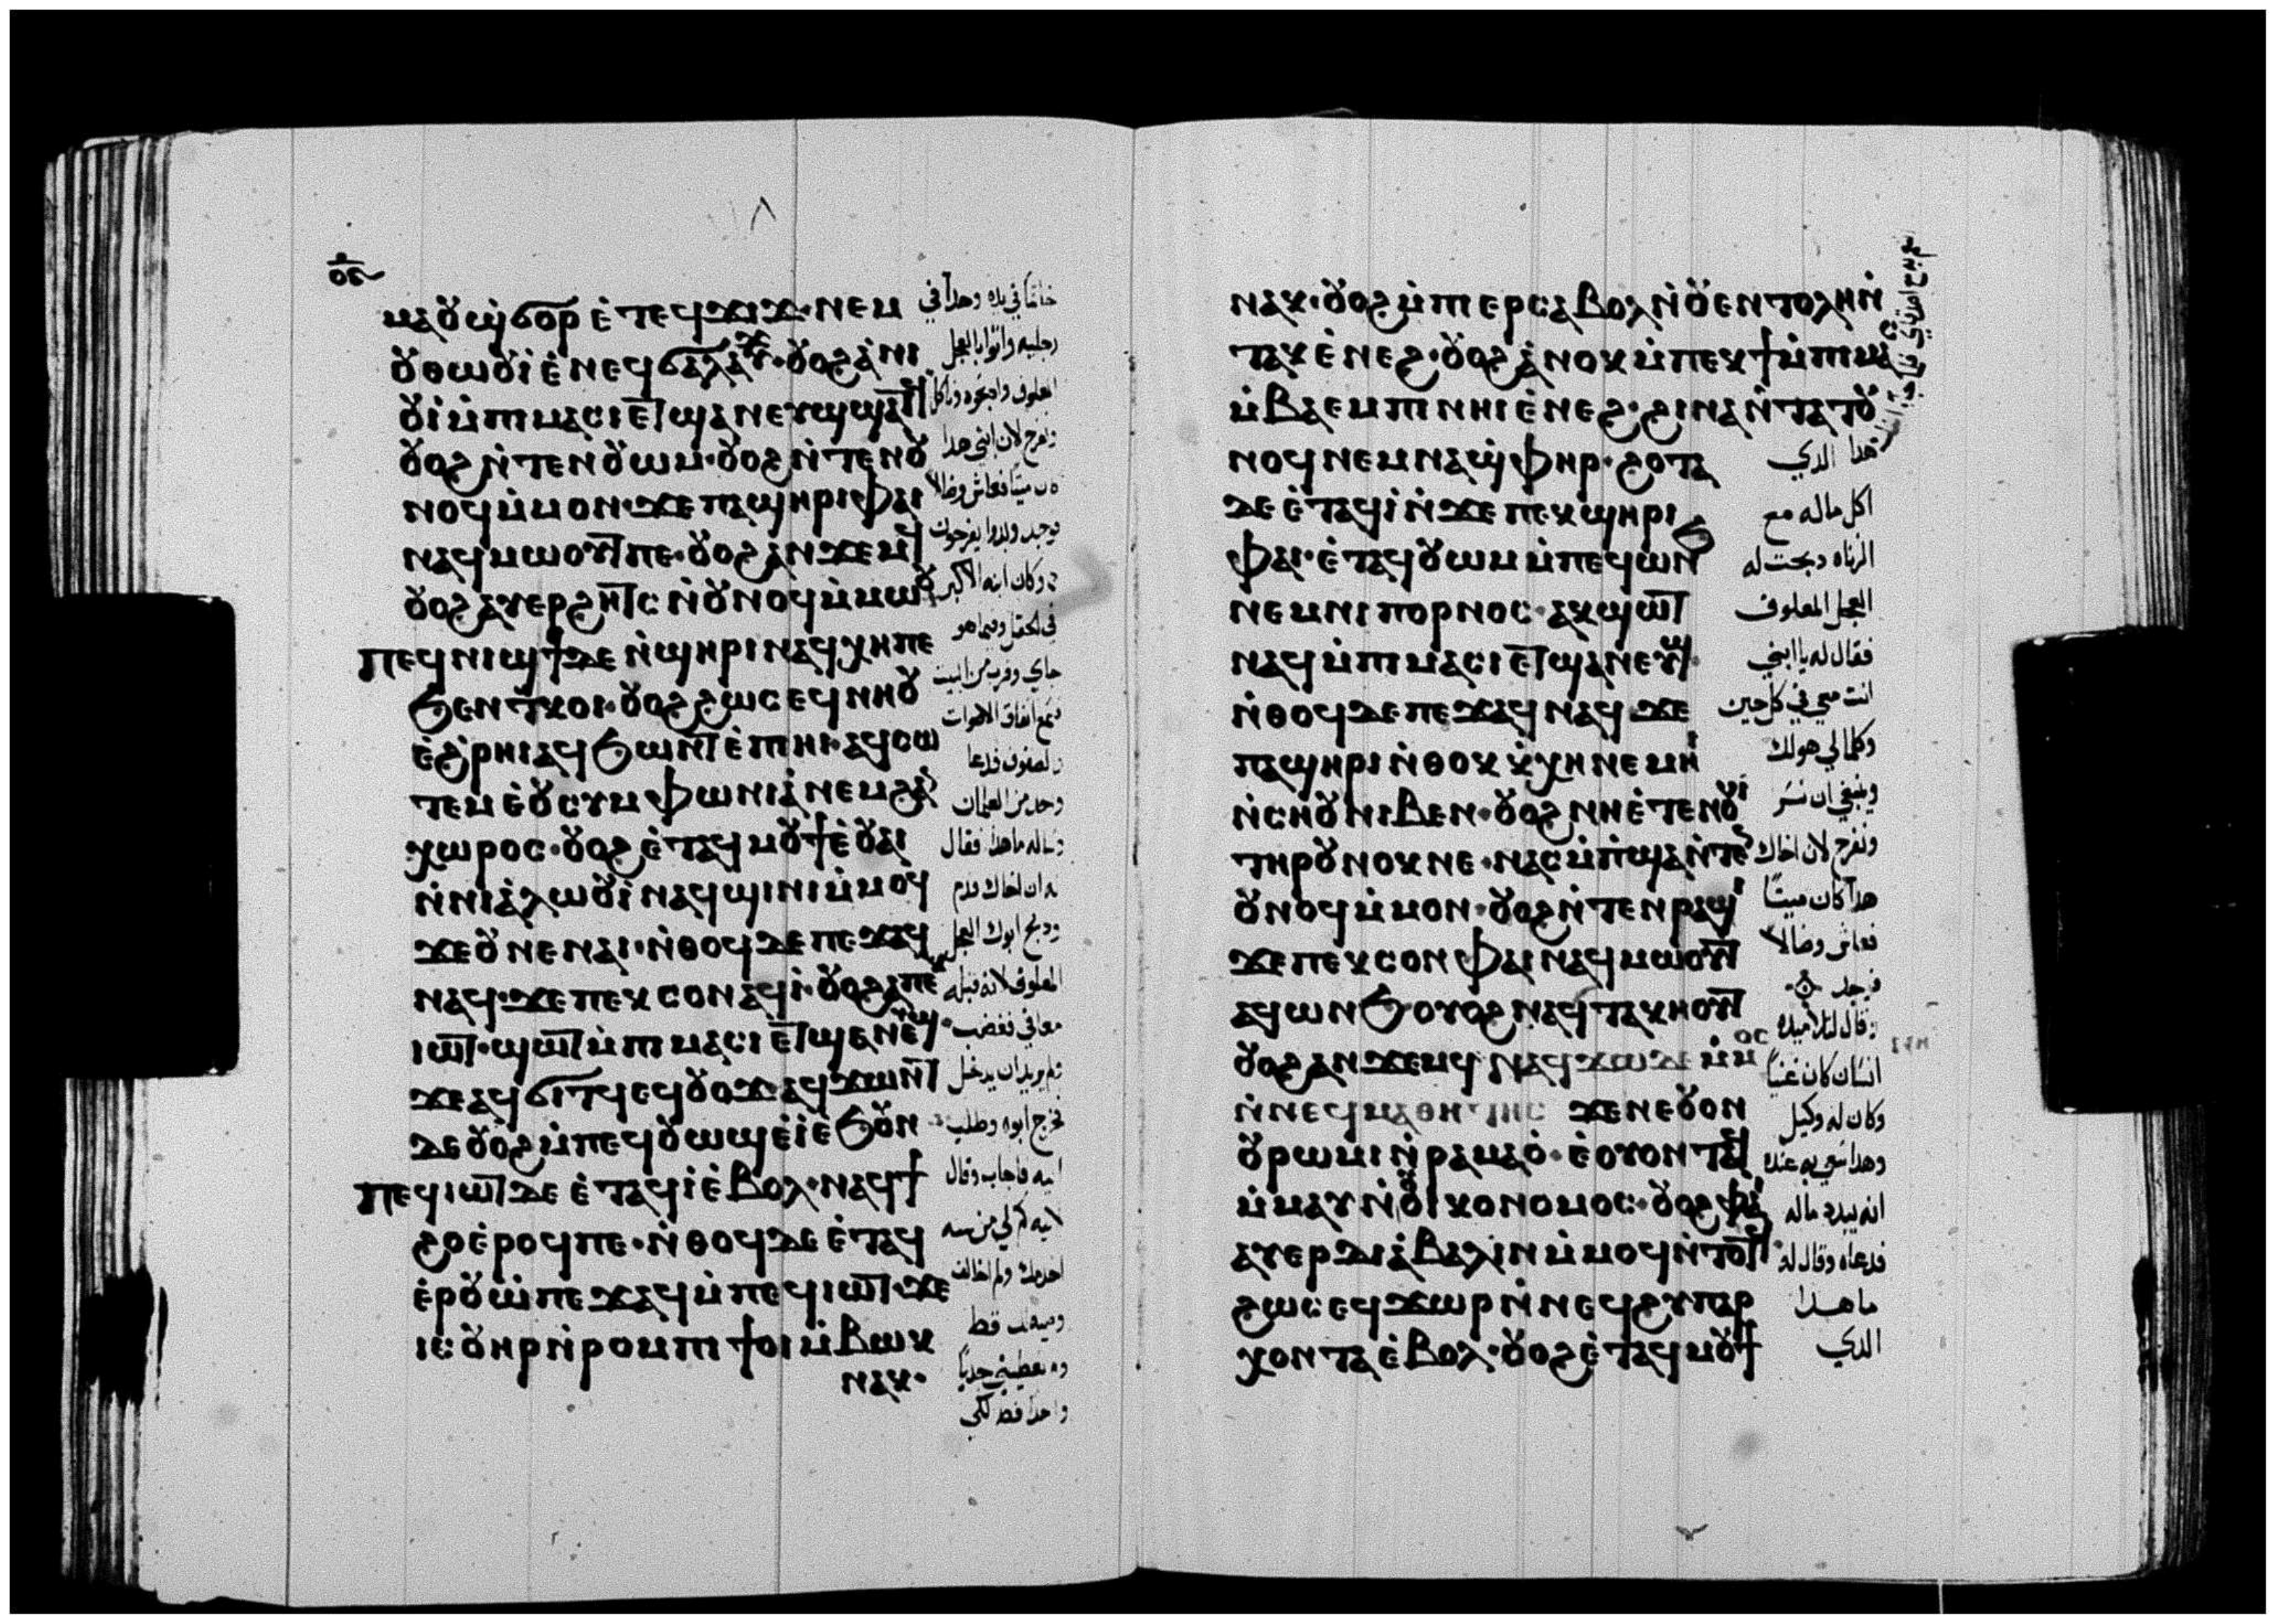 ⲙⲁⲟⲩϣ̀ϭⲟⲩⲣ ⲉ̀ⲧⲉϥϫⲓϫ·ⲛⲉⲙ
ⲟⲩⲑⲱⲟⲩⲓ̀ ⲉ̀ⲛⲉϥϭⲁⲗⲁⲩϫ·ⲟⲩⲟϩ ⲁ̀ⲛⲓ
ⲟⲩⲓ̀ ⲙ̀ⲡⲓⲙⲁⲥⲓ ⲉⲧϣⲁⲛⲉⲩϣ ϣⲁⲧϥ
ⲟⲩⲟϩ ⲛ̀ⲧⲉⲛⲟⲩⲱⲙ·ⲟⲩⲟϩ ⲛ̀ⲧⲉⲛⲟⲩ
ⲛⲟϥ ⲙ̀ⲙⲟⲛ·ϫⲉ ⲡⲁϣⲏⲣⲓ ⲫⲁⲓ
ⲛⲁϥⲙⲱⲟⲩⲧ ⲡⲉ·ⲟⲩⲟϩ ⲁⲛϫⲉⲙϥ
ⲟⲩⲟϩ ⲁⲩⲉⲣϩⲏⲧⲥ ⲛ̀ⲟⲩⲛⲟϥ ⲙ̀ⲙⲱⲟⲩ
ⲡⲉϥⲛⲓϣϯ ⲇⲉ ⲛ̀ϣⲏⲣⲓ ⲛⲁϥⲭⲏ ⲡⲉ
ϧⲉⲛ ⲧⲕⲟⲓ·ⲟⲩⲟϩ ϩⲱⲥ ⲉϥⲛⲏⲟⲩ
ⲉ̀ϩ̀ⲣⲏⲓ ⲁϥϧⲱⲛⲧ ⲉ̀ⲡⲓⲏⲓ·ⲁϥⲥⲱ
ⲧⲉⲙ ⲉ̀ⲟⲩⲥⲩⲙⲫⲱⲛⲓⲁ̀ ⲛⲉⲙ ϩⲁⲛ
ⲭⲱⲣⲟⲥ·ⲟⲩⲟϩ ⲉ̀ⲧⲁϥⲙⲟⲩϯ ⲉ̀ⲟⲩⲁⲓ
ⲛ̀ⲛⲓⲁ̀ⲗⲱⲟⲩⲓ̀ ⲛⲁϥϣⲓⲛⲓ ⲙ̀ⲙⲟϥ
ϫⲉ ⲟⲩ ⲛⲉ ⲛⲁⲓ·ⲛ̀ⲑⲟϥ ⲇⲉ ⲡⲉϫⲁϥ
ⲛⲁϥ·ϫⲉ ⲡⲉⲕⲥⲟⲛ ⲁϥⲓ̀·ⲟⲩⲟϩ ⲁ ⲡⲉⲕ
ⲓⲱⲧ·ϣⲱⲧ ⲙ̀ⲡⲓⲙⲁⲥⲓ ⲉⲧϣⲁⲛⲉⲩϣ
ϫⲉ ⲁϥϭⲓⲧϥ ⲉϥⲟⲩⲟϫ·ⲁϥϫⲱⲛⲧ
ⲇⲉ ⲟⲩⲟϩ ⲙ̀ⲡⲉϥⲟⲩⲱϣ ⲉ̀ⲓ̀ ⲉ̀ϧⲟⲩⲛ
ⲡⲉϥⲓⲱⲧ ⲇⲉ ⲉ̀ⲧⲁϥⲓ̀ ⲉ̀ⲃⲟⲗ·ⲛⲁϥϯ
ϩⲟ ⲉ̀ⲣⲟϥ ⲡⲉ·ⲛ̀ⲑⲟϥ ⲇⲉ ⲉ̀ⲧⲁϥ
ⲉ̀ⲣⲟⲩⲱ̀ ⲡⲉϫⲁϥ ⲙ̀ⲡⲉϥⲓⲱⲧ·ϫⲉ
ⲓⲥ ⲟⲩⲏⲣ ⲛ̀ⲣⲟⲙⲡⲓ ϯⲟⲓ ⲙ̀ⲃⲱⲕ
ⲛⲁⲕ·
خاتمًا في يده وحداً في
رجليه واتوا بالعجل
المعلوف واذبحوه وناكل
ونفرح لان ابني هدا
كان ميتا فعاش وضالا
فوجد وبدوا يفرحون
وكان ابنه الاكبر
في الحقل وفيما هو
جاي وقرب من البيت
سمع اتفاق الاصوات
فدعا
واحد من الغلمان
وساله ما هدا فقال
له ان اخاك قدم
ودبح ابوك العجل
المعلوف لانه قبله
معافي فغضب
ولم يريد ان يدخل
فخرج ابوه وطلب
اليه فاجاب وقال
لابيه كم لي من سنه
اخدمك ولم اخالف
وصيتك قط
ولم تعطيني جديًا
واحدا قط لكي
ⲛⲁⲕ·ⲟⲩⲟϩ ⲙ̀ⲡⲓⲉⲣⲥⲁⲃⲟⲗ ⲛ̀ⲟⲩⲉⲛⲧⲟⲗⲏ ⲛ̀
ⲧⲁⲕ ⲉ̀ⲛⲉϩ·ⲟⲩⲟϩ ⲁ̀ⲛⲟⲕ ⲙ̀ⲡⲉⲕϯ ⲙ̀ⲡⲓⲙⲁⲥ
ⲙ̀ⲃⲁⲉⲙⲡⲓ ⲛⲏⲓ ⲉ̀ⲛⲉϩ·ϩⲓⲛⲁ ⲛ̀ⲧⲁⲧⲟⲩ
ⲛⲟϥ ⲛⲉⲙ ⲛⲁϣ̀ⲫⲏⲣ·ϩⲟⲧⲁ
ⲇⲉ ⲉ̀ⲧⲁϥⲓ̀ ⲛ̀ϫⲉ ⲡⲉⲕϣⲏⲣⲓ
ⲫⲁⲓ·ⲉ̀ⲧⲁϥⲟⲩⲱⲙ ⲙ̀ⲡⲉϥⲱⲛϧ
ⲛⲉⲙ ⲛⲓⲡⲟⲣⲛⲟⲥ·ⲁⲕϣⲱⲧ
ⲛⲁϥ ⲙ̀ⲡⲓⲙⲁⲥⲓ ⲉⲧϣⲁⲛⲉⲩϣ·
ⲛ̀ⲑⲟϥ ⲇⲉ ⲡⲉϫⲁϥ ⲛⲁϥ ϫⲉ
ⲡⲁϣⲏⲣⲓ ⲛ̀ⲑⲟⲕ ⲕ̀ⲭⲏ ⲛⲉⲙⲏⲓ
ⲛ̀ⲥⲏⲟⲩ ⲛⲓⲃⲉⲛ·ⲟⲩⲟϩ ⲛⲏ ⲉ̀ⲧⲉⲛⲟⲩⲓ
ⲧⲏⲣⲟⲩ ⲛⲟⲩⲕ ⲛⲉ·ⲛⲁⲥⲙ̀ⲡ̀ϣⲁ ⲛ̀ⲧⲉⲛ
ⲟⲩⲛⲟϥ ⲙ̀ⲙⲟⲛ·ⲟⲩⲟϩ ⲛ̀ⲧⲉⲛⲣⲁϣⲓ
ϫⲉ ⲡⲉⲕⲥⲟⲛ ⲫⲁⲓ ⲛⲁϥⲙⲱⲟⲩⲧ
ⲁϥⲱⲛϧ ⲟⲩⲟϩ ⲛⲁϥⲧⲁⲕⲏⲟⲩⲧ
ⲟⲩⲟϩ ⲁⲛϫⲉⲙϥ ⲛⲁϥϫⲱ ⲇⲉ ⲙ̀ⲙⲟⲥ
ⲛ̀ⲛⲉϥⲙⲁⲑⲏⲧⲏⲥ ϫⲉ ⲛⲉ ⲟⲩⲟⲛ
ⲟⲩⲣⲱⲙⲓ ⲛ̀ⲣⲁⲙⲁⲟ̀·ⲉ̀ⲟⲩⲟⲛⲧⲁϥ
ⲙ̀ⲙⲁⲩ ⲛ̀ⲟⲩⲟⲓⲕⲟⲛⲟⲙⲟⲥ·ⲟⲩⲟϩ ⲫⲁⲓ
ⲁⲩⲉⲣⲇⲓⲁ̀ⲃⲁⲗⲓⲛ ⲙ̀ⲙⲟϥ ⲛ̀ⲧⲟⲧϥ
ϩⲱⲥ ⲉϥϫⲱⲣ ⲛ̀ⲛⲉϥϩⲩⲡⲁⲣ
ⲭⲟⲛⲧⲁ ⲉ̀ⲃⲟⲗ·ⲟⲩⲟϩ ⲉ̀ⲧⲁϥⲙⲟⲩϯ
هدا الدي
اكل ماله مع
الزناه دبحت له
العجل المعلوف
فقال له يا ابني
انت معي في كل حين
وكلما لي هو لك
وينبغي ان نسر
ونفرح لان اخاك
هدا كان ميتًا
فعاش وضالا
فوجد
وقال لتلاميده
انسان كان غنيًا
وكان له وكيل
وهدا سعي به عنده
انه يبدد ماله
فدعاه وقال له
ما هدا
الدي